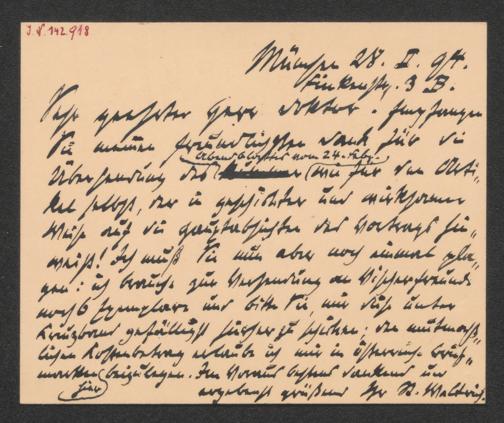 I. N. 142.918
München 28. II. 94.
Finkenstr. 3 B.
Sehr geehrter Herr Doktor. Empfangen
Sie meinen freundlichsten Dank für die
Abendblattes vom 24. Feb.
Übersendung des wie für den Arti-
kel selbst, der in geschickter und wirksamer
Weise auf die Hauptabsichten des Vortrags hin-
weist! Ich muß Sie nun aber noch einmal pla-
gen: ich brauche zur Versendung an Vischerfreunde
noch 6 Exemplare und bitte Sie, mir diese unter
Kreuzband gefälligst hierher zu schicken; den mutmaß-
lichen Kostenbetrag erlaube ich mir in österreich. Brief-
marken beizulegen. Im Voraus bestens dankend und
hier
ergebenst grüßend Ihr